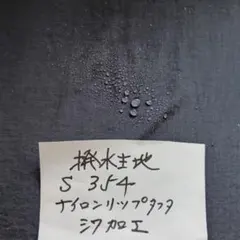 撥水生地
S 354
ナイロンリップタフタ
シワ加工